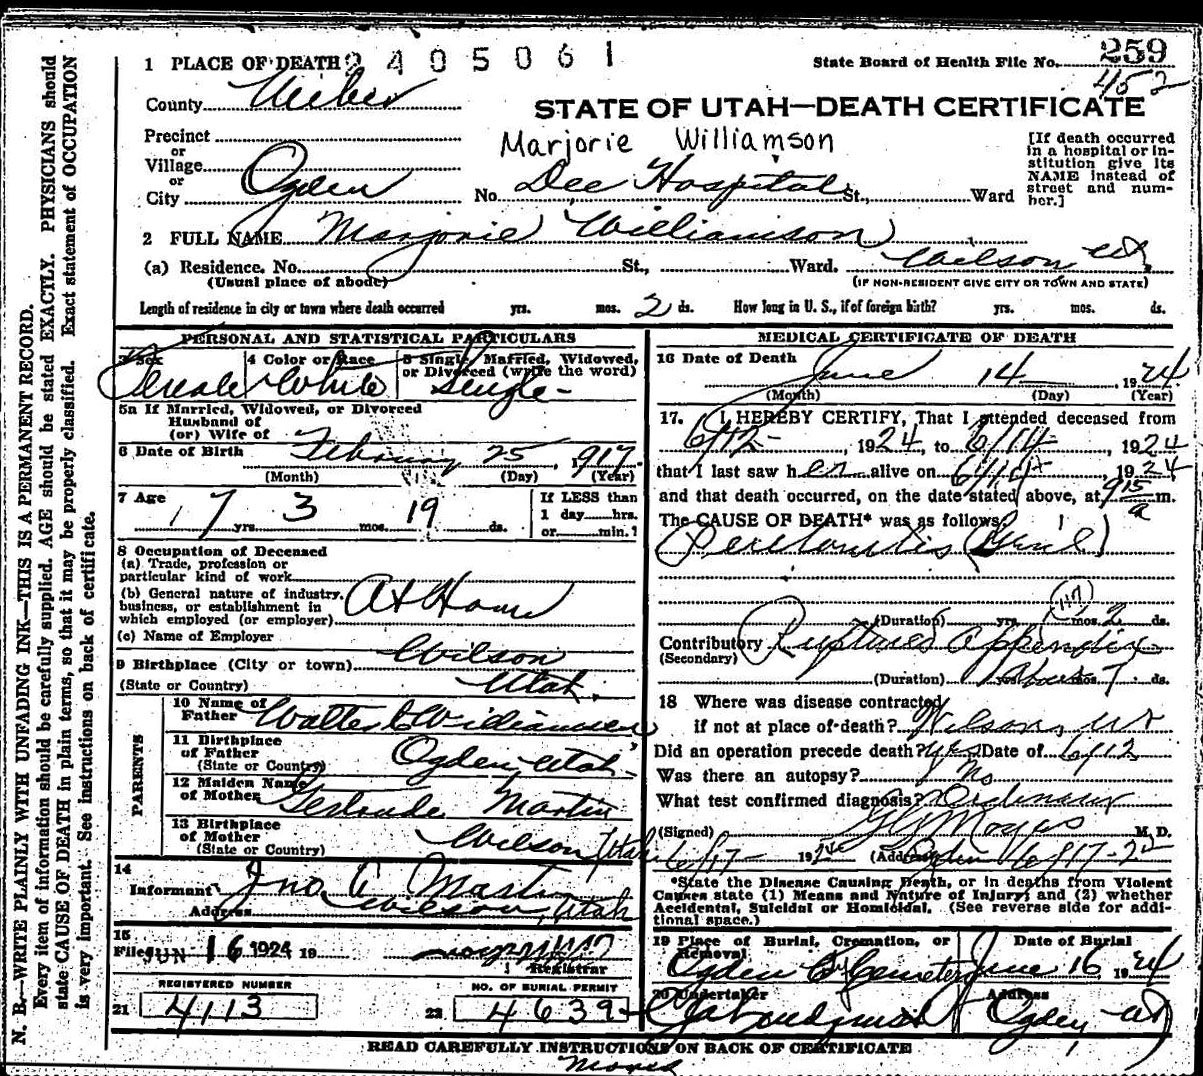 259
1 PLACE OF DEATH 2405061 State Board of Health File No. 452
County Weber
STATE OF UTAH—DEATH CERTIFICATE
Precinct
or
Village
or
City Ogden
Marjorie Williamson
No. Dee Hospital St., Ward
[If death occurred
in a hospital or in-
stitution give its
NAME instead of
street and num-
ber.]
2 FULL NAME Marjorie Williamson
(a) Residence. No. St., Ward. Wilson Ut.
(Usual place of abode) (IF NON-RESIDENT GIVE CITY OR TOWN AND STATE)
Length of residence in city or town where death occurred yrs. mos. 2 ds. How long in U. S., if of foreign birth? yrs. mos. ds.
PERSONAL AND STATISTICAL PARTICULARS
3 Sex
Female
4 Color or Race
White
5 Single, Married, Widowed,
or Divorced (write the word)
Single
5a If Married, Widowed, or Divorced
Husband of
(or) Wife of
6 Date of Birth February 25, 1917
(Month) (Day) (Year)
7 Age
7 yrs. 3 mos. 19 ds.
If LESS than
1 day hrs.
or min.?
8 Occupation of Deceased
(a) Trade, profession or
particular kind of work
(b) General nature of industry,
business, or establishment in
which employed (or employer) At Home
(c) Name of Employer
9 Birthplace (City or town) Wilson
(State or Country) Utah
PARENTS
10 Name of
Father Walter C Williamson
11 Birthplace
of Father
(State or Country) Ogden, Utah
12 Maiden Name
of Mother Gertrude Martin
13 Birthplace
of Mother
(State or Country) Wilson Utah
14
Informant Jno. C. Martin
Address Wilson, Utah
15
Filed JUN 16 1924 19
Registrar
REGISTERED NUMBER
21 4113
NO. OF BURIAL PERMIT
22 4639
MEDICAL CERTIFICATE OF DEATH
16 Date of Death
June 14, 1924
(Month) (Day) (Year)
17. I HEREBY CERTIFY, That I attended deceased from
6/12, 1924, to 6/14, 1924
that I last saw her alive on 6/14, 1924
and that death occurred, on the date stated above, at 9 15 a m.
The CAUSE OF DEATH* was as follows:
Peritonitis (Genl)
117
(Duration) yrs. mos. 2 ds.
Contributory Ruptured Appendix
(Secondary)
(Duration) yrs. About mos. 7 ds.
18 Where was disease contracted
if not at place of death? Wilson, Ut
Did an operation precede death? yes Date of 6/12
Was there an autopsy? No
What test confirmed diagnosis?
(Signed) M. D.
6/17 1924 (Address) Ogden
*State the Disease Causing Death, or in deaths from Violent
Causes state (1) Means and Nature of Injury; and (2) whether
Accidental, Suicidal or Homicidal. (See reverse side for addi-
tional space.)
19 Place of Burial, Cremation, or
Removal
Ogden City Cemetery
Date of Burial
June 16, 1924
20 Undertaker
Address
Ogden Ut
READ CAREFULLY INSTRUCTIONS ON BACK OF CERTIFICATE
N. B.—WRITE PLAINLY WITH UNFADING INK—THIS IS A PERMANENT RECORD.
Every item of information should be carefully supplied. AGE should be stated EXACTLY. PHYSICIANS should
state CAUSE OF DEATH in plain terms, so that it may be properly classified. Exact statement of OCCUPATION
is very important. See instructions on back of certificate.